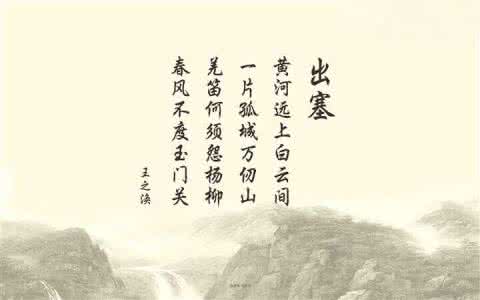 出塞
黄河远上白云间
一片孤城万仞山
羌笛何须怨杨柳
春风不度玉门关
王之涣